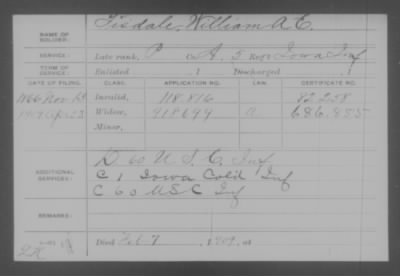 NAME OF SOLDIER: Tisdale, William A. C.
SERVICE: Late rank, P Co. A, 5 Reg't Iowa Inf
TERM OF SERVICE: Enlisted , 1 Discharged , 1
DATE OF FILING. CLASS. APPLICATION NO. LAW. CERTIFICATE NO.
1866 Nov Invalid, 118.816 82.258
1909 Widow, 918699 686.855
Minor,
ADDITIONAL SERVICES: D 60 U.S.C. Inf
C 1 Iowa Cold Inf
C 60 U S C Inf
REMARKS:
Died Feb 7, 1909, at